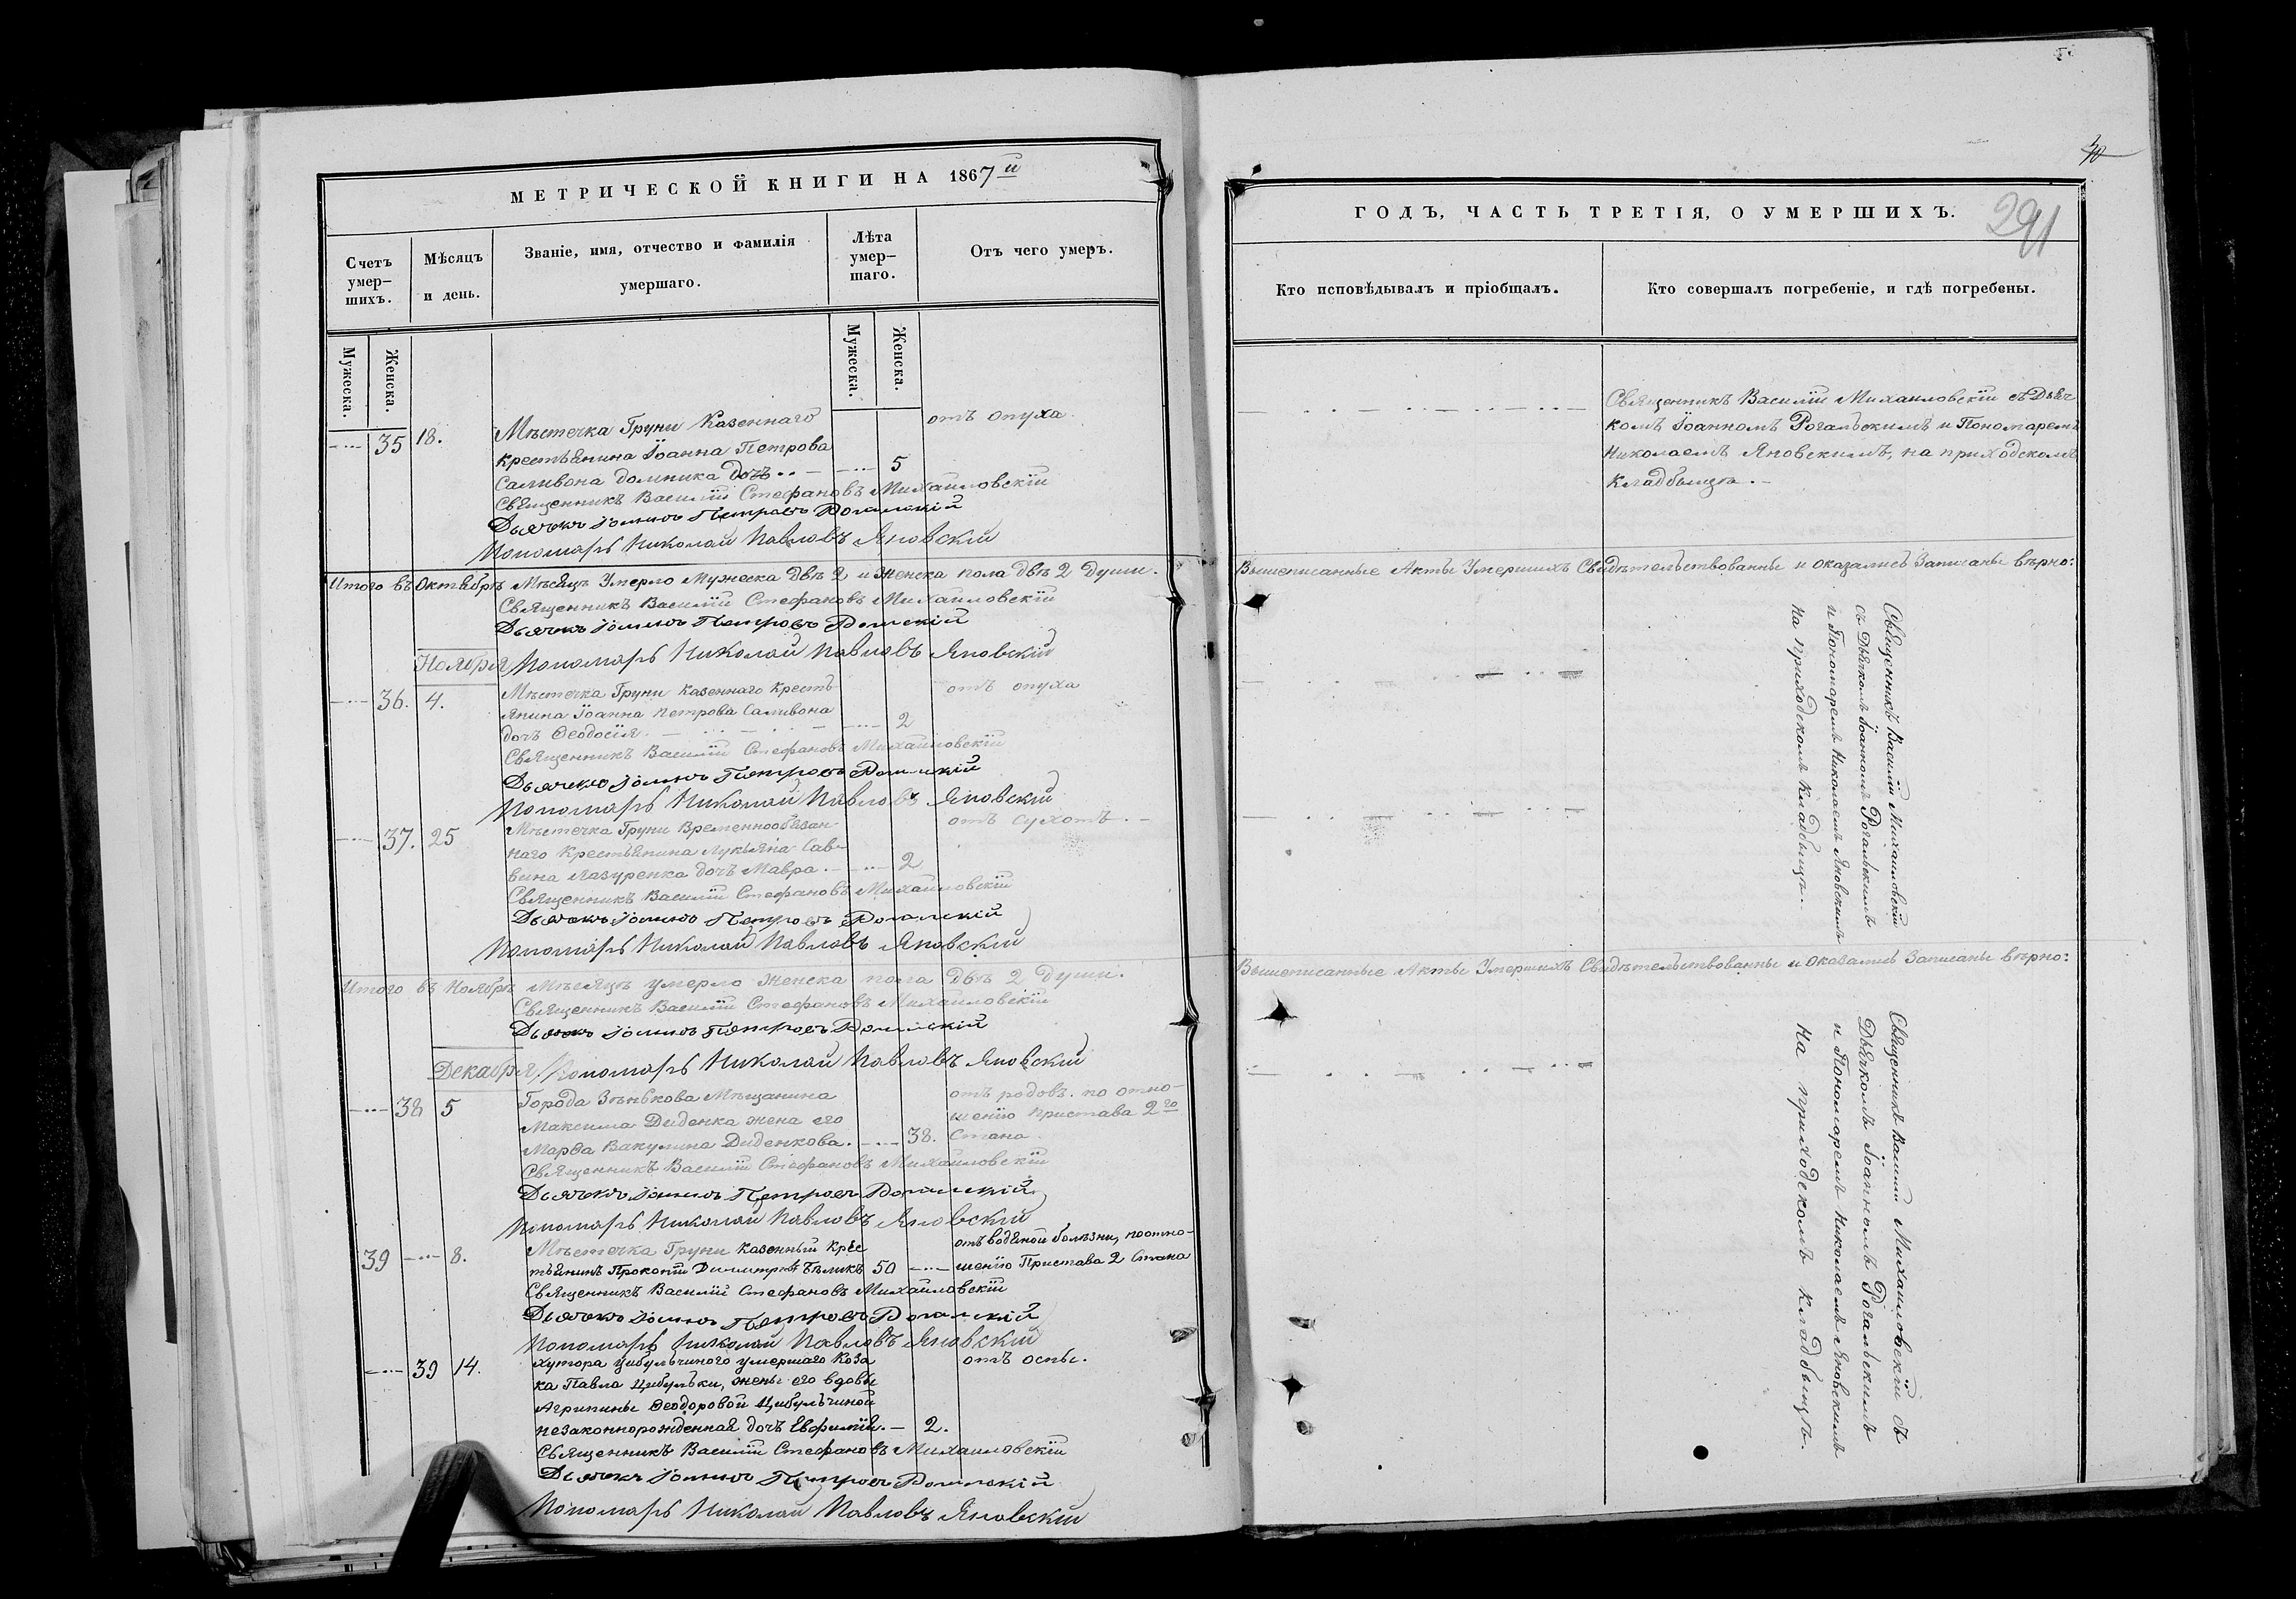 МЕТРИЧЕСКОЙ КНИГИ НА 1867й
Счетъ умер-шихъ.
Мѣсяцъ и день.
Званіе, имя, отчество и фамилія умершаго.
Лѣта умер-шаго.
Отъ чего умеръ.
Мужеска.
Женска.
Мужеска.
Женска.
35 18. Мѣстечка Груни Казеннаго отъ опуха
крестьянина Іоанна Петрова
Саливона домника дочь 5
Священникъ Василій Стефановъ Михайловскій
Дьячекъ Іоаннъ Петровъ Рогальскій
Пономарь Николай Павловъ Яновскій
Итого въ Октябрѣ Мѣсяцѣ Умерло Мужеска двѣ 2 и Женска пола двѣ 2 Души.
Священникъ Василій Стефановъ Михайловскій
Дьячекъ Іоаннъ Петровъ Рогальскій
Ноября Пономарь Николай Павловъ Яновскій
36. 4. Мѣстечка Груни казеннаго кресть отъ опуха
янина Іоанна Петрова Саливона
дочь Ѳеодосія. 2
Священникъ Василій Стефановъ Михайловскій
Дьячекъ Іоаннъ Петровъ Рогальскій
Пономарь Николай Павловъ Яновскій
37. 25 Мѣстечка Груни Временнообязан- отъ сухотъ.
наго Крестьянина Лукьяна Сав-
вина Лазуренка дочь Мавра. 2
Священникъ Василій Стефановъ Михайловскій
Дьячекъ Іоаннъ Петровъ Рогальскій
Пономарь Николай Павловъ Яновскій
Итого въ Ноябрѣ Мѣсяцѣ умерло Женска пола Двѣ 2 Души.
Священникъ Василій Стефановъ Михайловскій
Дьячекъ Іоаннъ Петровъ Рогальскій
Декабря. Пономарь Николай Павловъ Яновскій
38 5 Города Зѣнькова Мѣщанина отъ родовъ. по отно-
Максима Диденка жена его шенію Пристава 2го
Марѳа Вакулина Диденкова. 38. Стана
Священникъ Василій Стефановъ Михайловскій
Дьячекъ Іоаннъ Петровъ Рогальскій
Пономарь Николай Павловъ Яновскій
39 8. Мѣстечка Груни казенный Крес отъ водяной болѣзни, поотно-
тьянинъ Прокопій Димитріевъ Бѣликъ 50 шенію Пристава 2 Стана
Священникъ Василій Стефановъ Михайловскій
Дьячекъ Іоаннъ Петровъ Рогальскій
Пономарь Николай Павловъ Яновскій
39 14. Хутора Цибульчиного умершаго Коза отъ оспы.
ка Павла Цибульки, жены его вдовы
Агрипины Ѳеодоровой Цибульчиной
незаконнорожденная дочь Евфимія. 2.
Священникъ Василій Стефановъ Михайловскій
Дьячекъ Іоаннъ Петровъ Рогальскій
Пономарь Николай Павловъ Яновскій
ГОДЪ, ЧАСТЬ ТРЕТІЯ, О УМЕРШИХЪ.
291
Кто исповѣдывалъ и пріобщалъ.
Кто совершалъ погребеніе, и гдѣ погребены.
Священникъ Василій Михайловскій съ Дьяч
комъ Іоанномъ Рогальскимъ и Пономаремъ
Николаемъ Яновскимъ, на приходскомъ
кладбищѣ.
Вышеписанные Акты Умершихъ Свидѣтельствованы и оказались Записаны вѣрно:
Священникъ Василій Михайловскій
съ Дьячкомъ Іоанномъ Рогальскимъ
и Пономаремъ Николаемъ Яновскимъ
на приходскомъ кладбищѣ.
Вышеписанные Акты Умершихъ Свидѣтельствованы и оказались Записаны вѣрно:
Священникъ Василій Михайловскій съ
Дьячкомъ Іоанномъ Рогальскимъ
и Пономаремъ Николаемъ Яновскимъ
на приходскомъ кладбищѣ.